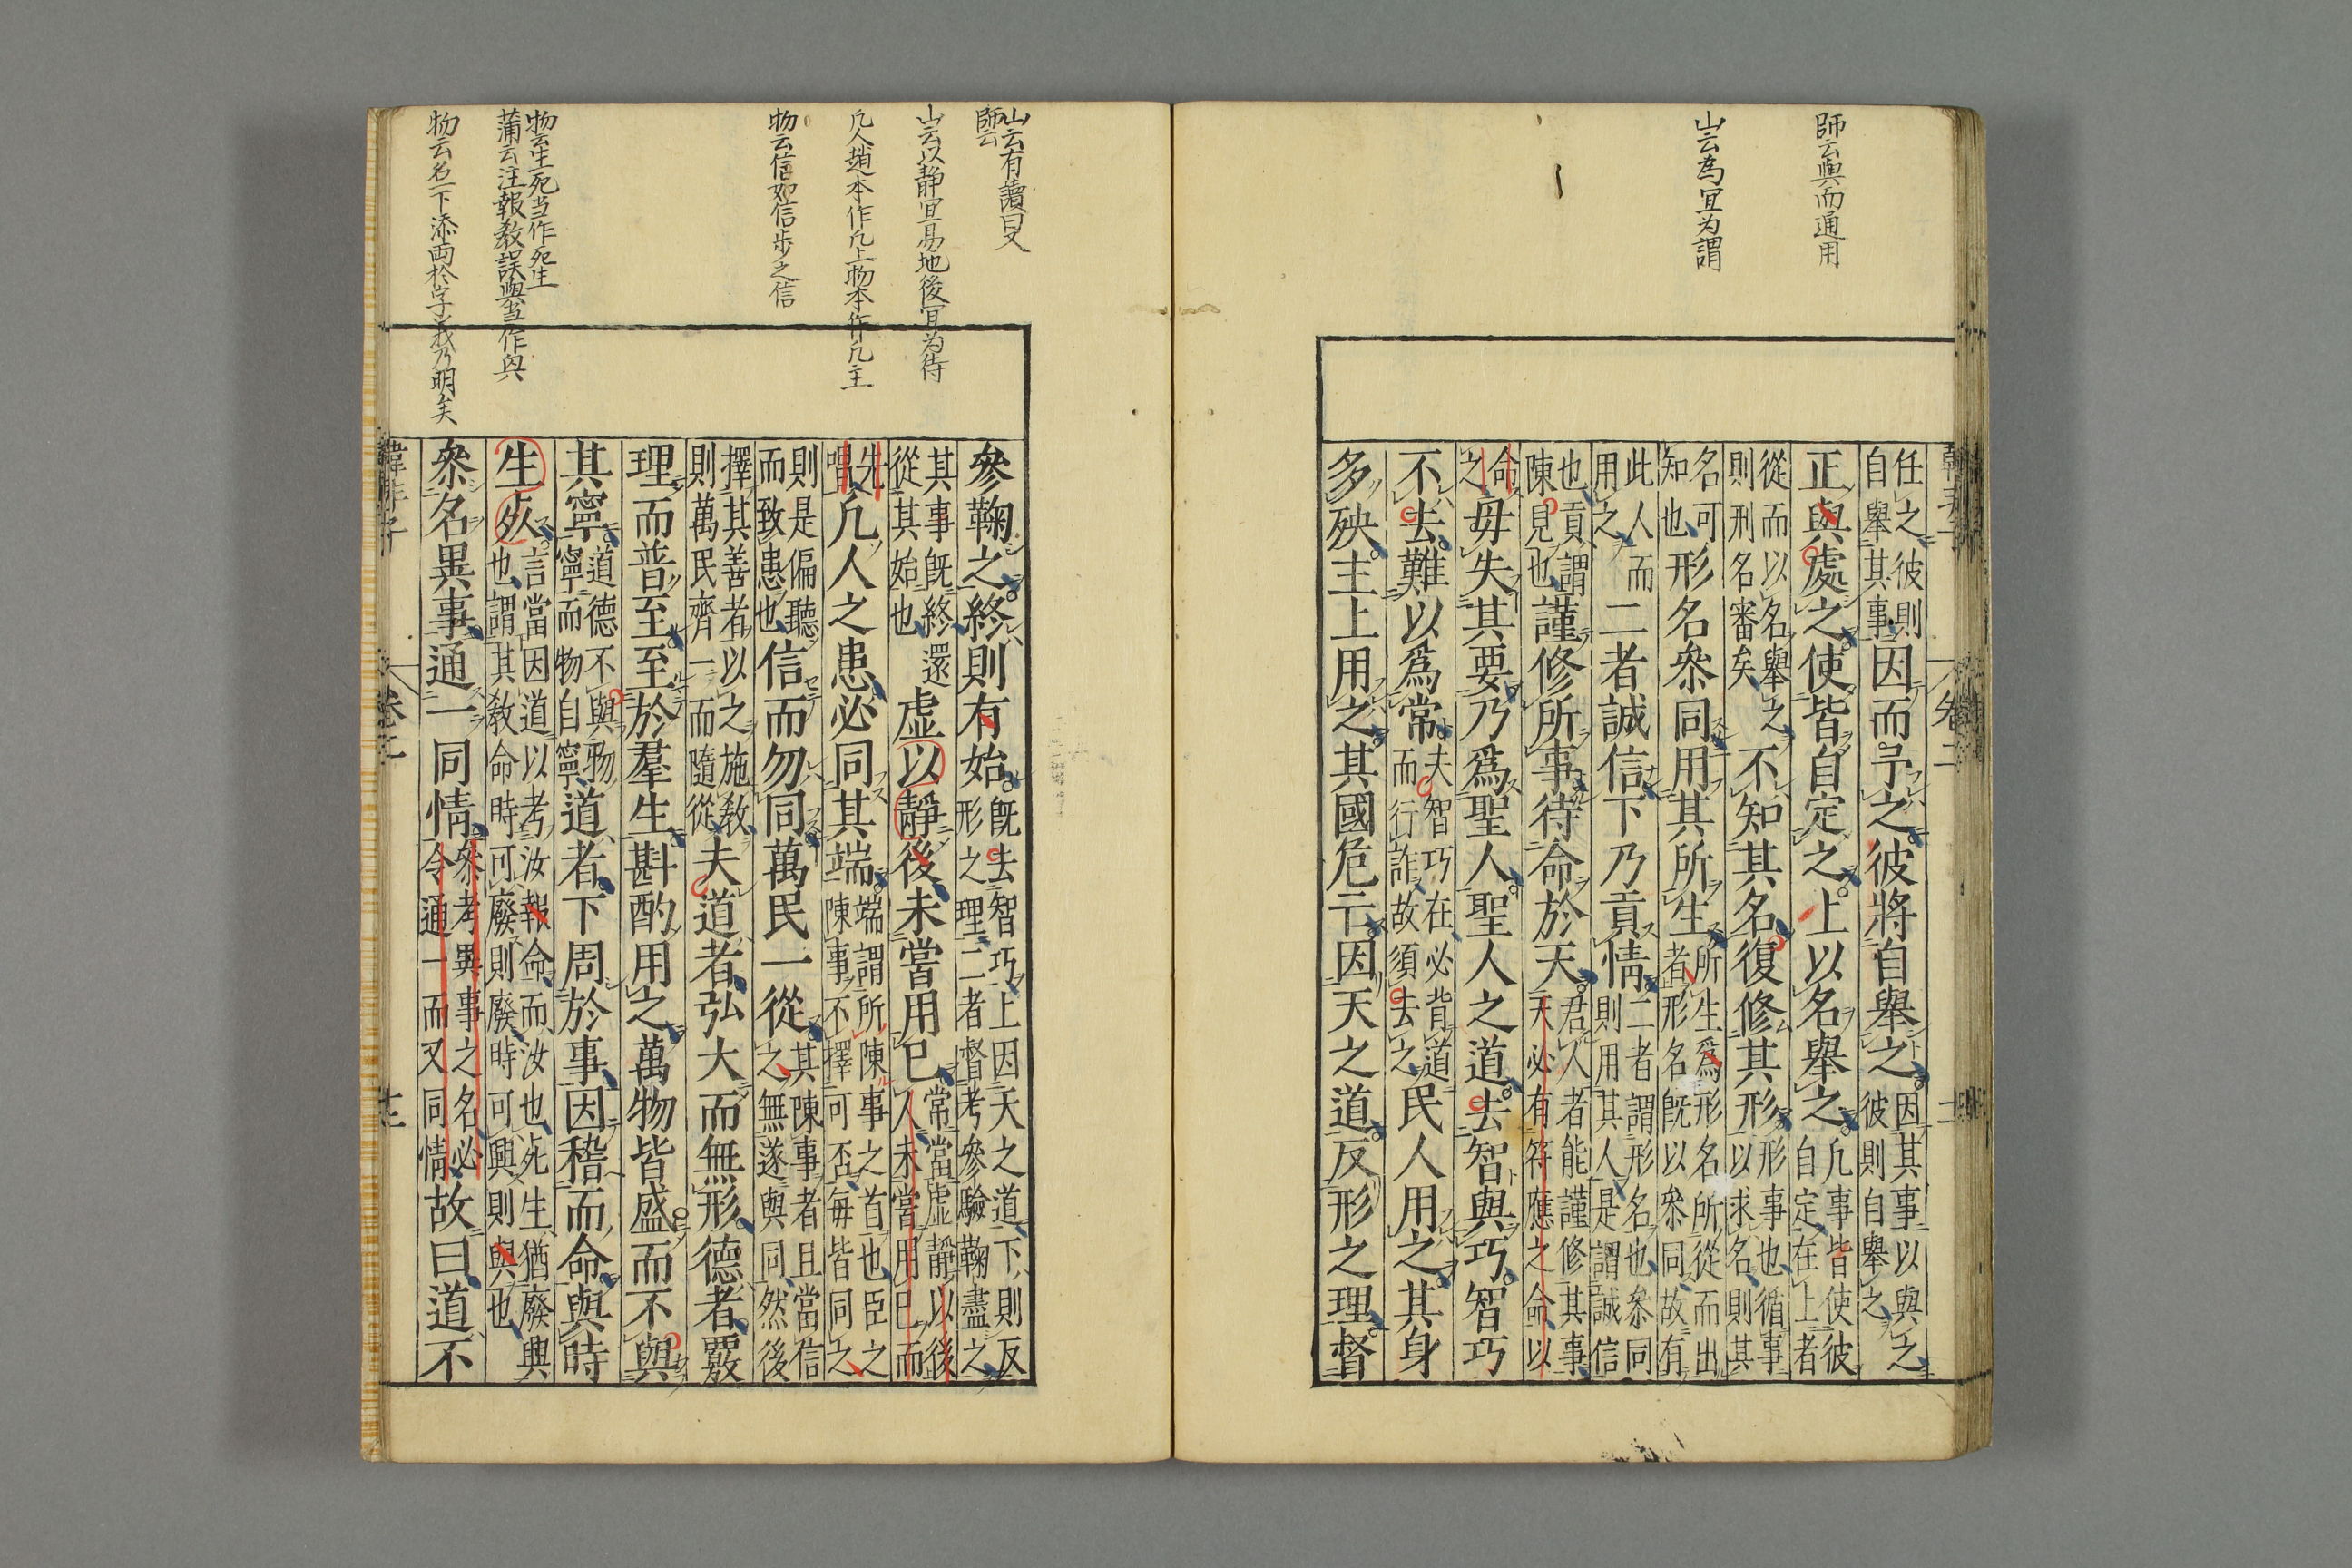 師云與而通用
山云為冝为謂
任之彼則自舉其事因而予之彼將自舉之因其事以與之彼則自舉之
正與處之使皆自定之上以名舉之凡事皆使彼自定在上者
從而以名舉之則刑名審矣不知其名復修其形形事也循事以求名則其
名可知也形名叅同用其所生所生爲形名所從而出者形名既以叅同故有
此人而用之二者誠信下乃貢情二者謂形名也叅同則用其人是謂誠信
也貢謂陳見也謹修所事待命於天君人者能謹修其事天必有符應之命以
命之毋失其要乃爲聖人聖人之道去智與巧智巧
不去難以爲常夫智巧在必背道而行詐故須去之民人用之其身
多殃主上用之其國危亡因天之道反形之理督
卷二
山云有讀曰又
師云
山云以静冝易地後冝为待
凡人趙本作凡上物本作凡主
物云信如信步之信
物云生死当作死生
蒲云注報教誤與当作與
物云名下添両於字義乃明矣
參鞠之終則有始既去智巧上因天之道下則反形之理二者督考參驗鞠盡之
其事既終還從其始也虚以靜後未嘗用已常當虛靜以後人未嘗用已而
先唱凡人之患必同其端端謂所陳事之首也臣之陳事不擇可否每皆同之
則是偏聽而致患也信而勿同萬民一從其陳事者且當信之無遂與同然後
擇其善者以之施敎則萬民齊一而隨從夫道者弘大而無形德者覈
理而普至至於羣生斟酌用之萬物皆盛而不與
其寧道德不與物寧而物自寧道者下周於事因稽而命與時
生死言當因道以考汝報命而汝也死生猶廢興也謂其敎命時可廢則廢時可興則與也
叅名異事通一同情叅考異事之名必令通一而又同情故曰道不
韓非子
卷二